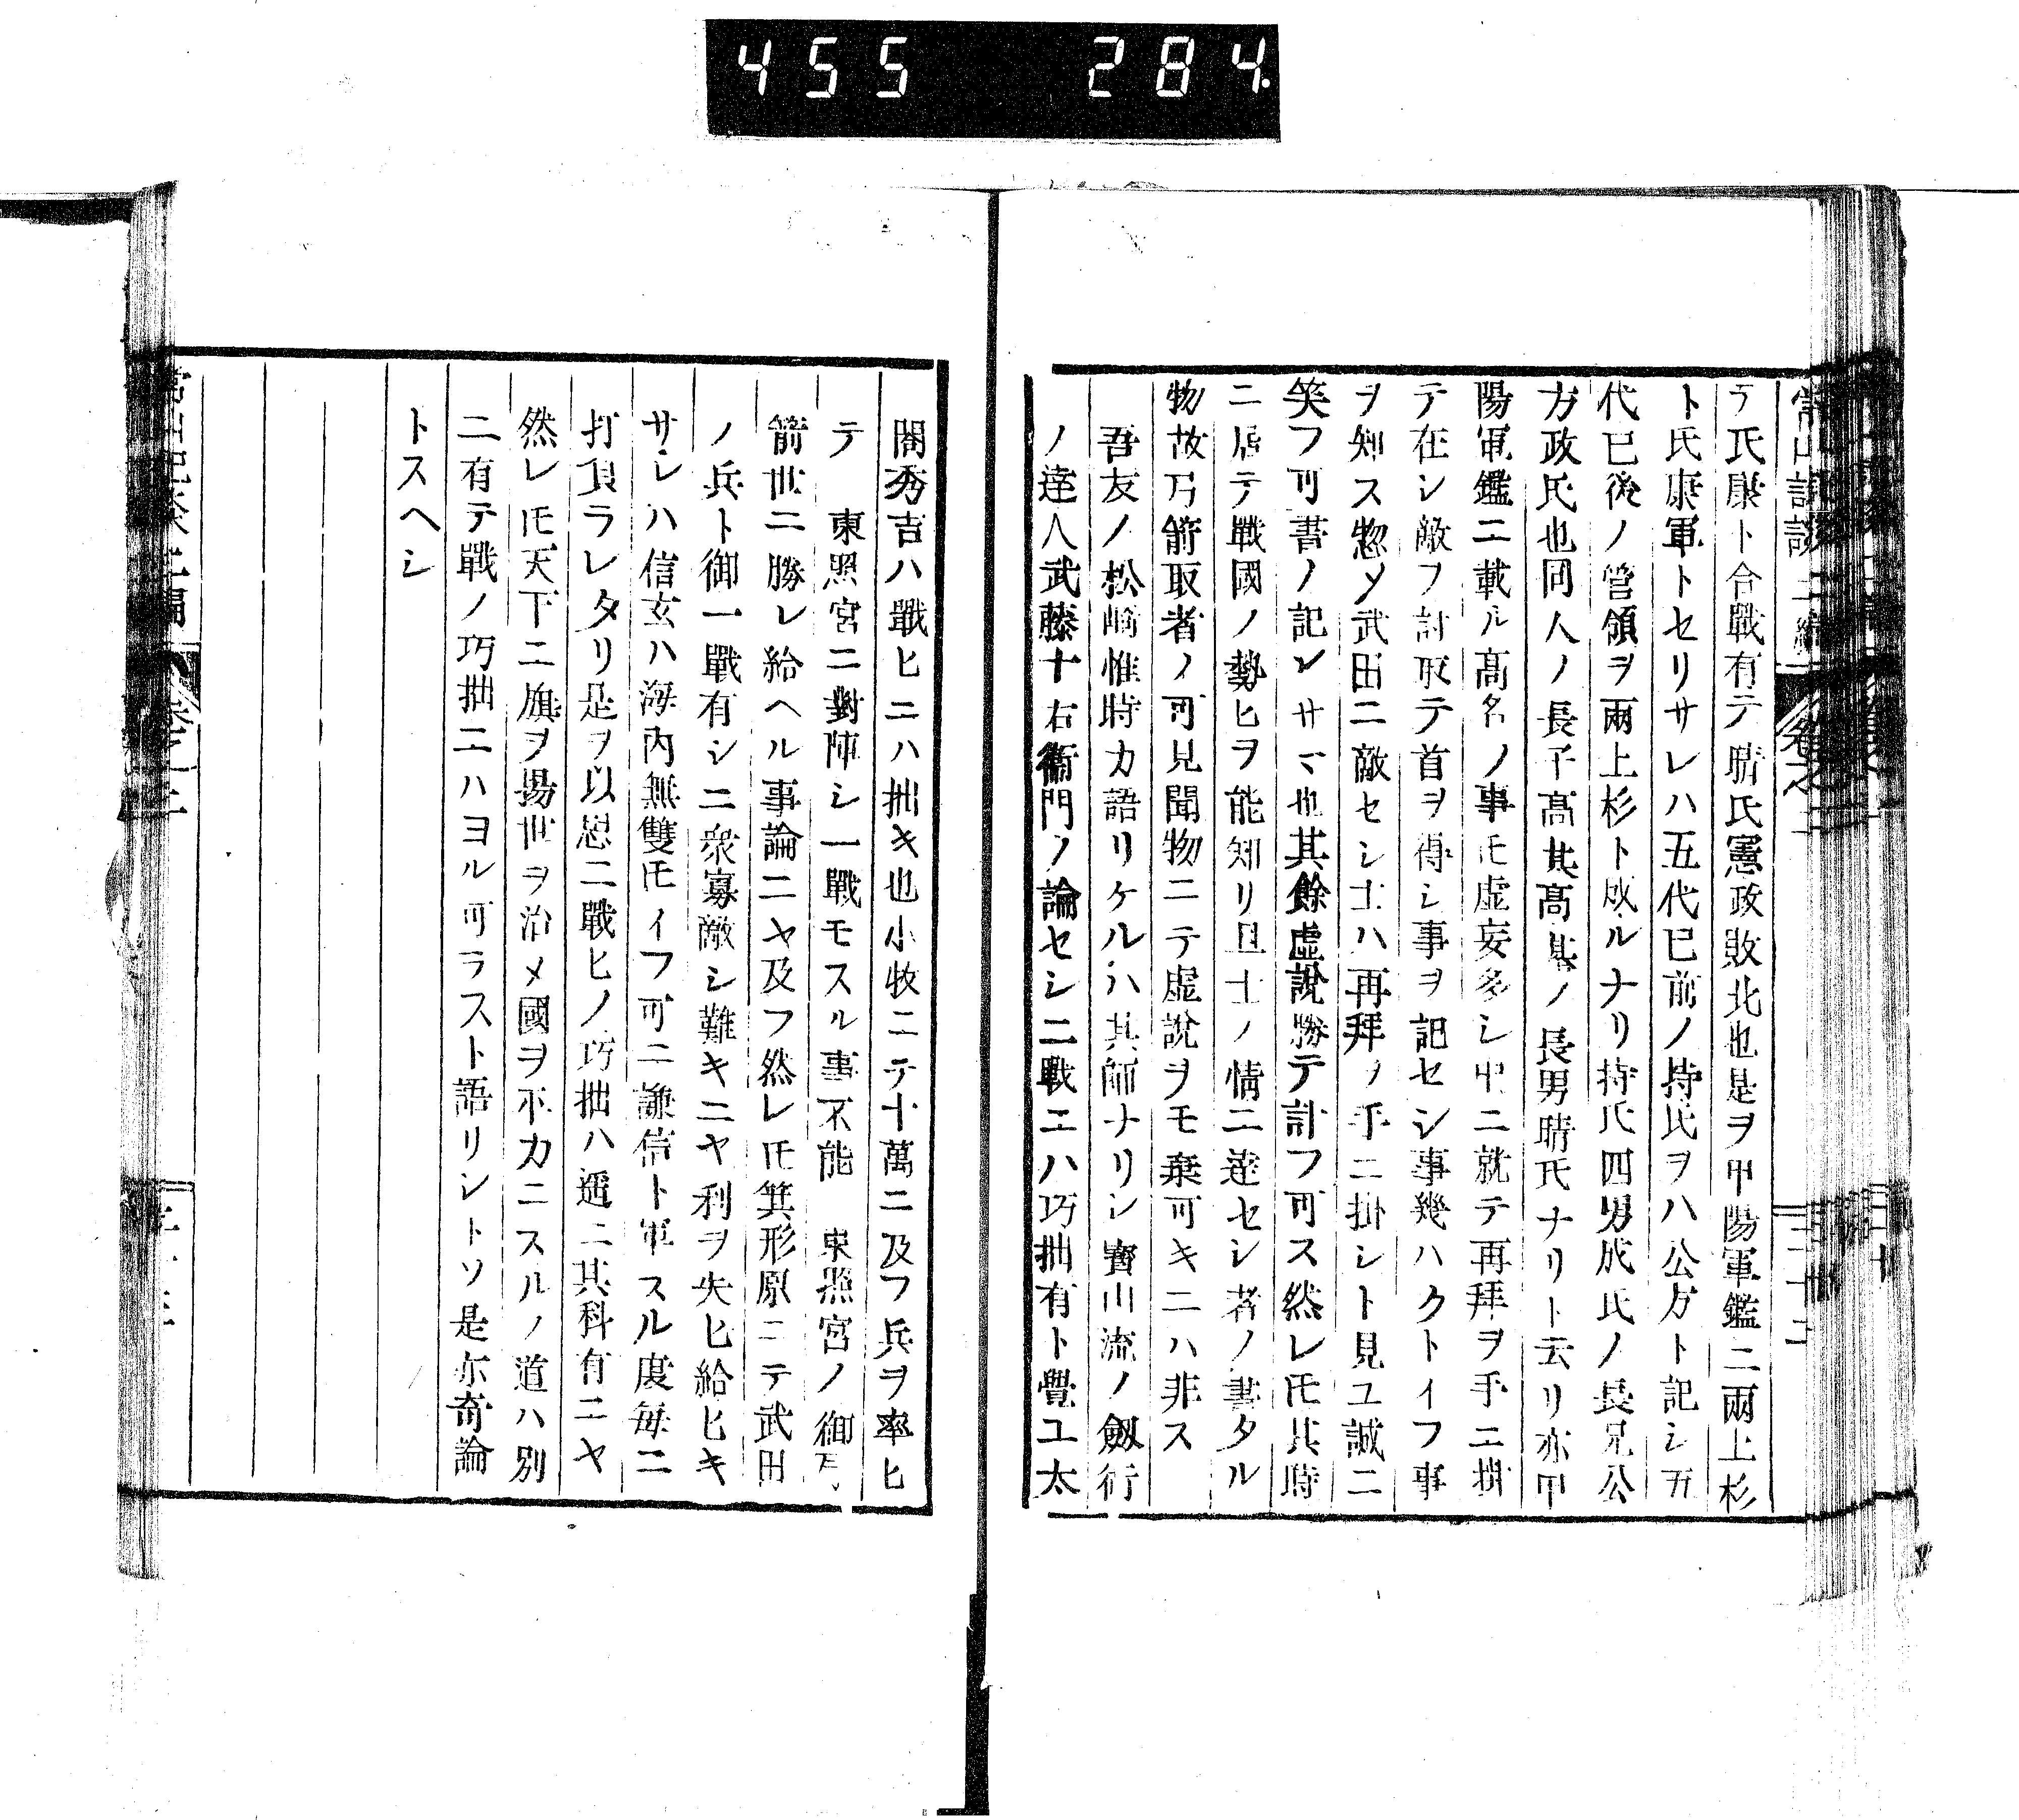 455 284.
テ氏康ト合戰有テ晴氏憲政敗北也是ヲ甲陽軍鑑ニ兩上杉
ト氏康軍トセリサレハ五代已前ノ持氏ヲハ公方ト記シ五
代已後ノ管領ヲ兩上杉ト爲ルナリ持氏四男成氏ノ長兄公
方政氏也同人ノ長子高基高基ノ長男晴氏ナリト云リ亦甲
陽軍鑑ニ載ル高名ノ事𪜈虚妄多シ中ニ就テ再拜ヲ手ニ掛
テ在シ敵ヲ討取テ首ヲ得シ事ヲ記セシ事幾ハクトイフ事
ヲ知ス惣ソ武田ニ敵セシ士ハ再拜ヲ手ニ掛シト見ユ誠ニ
笑フ可書ノ記シサマ也其餘虚說勝テ計フ可ス然レ𪜈其時
ニ居テ戰國ノ勢ヒヲ能知リ且士ノ情ニ達セシ者ノ書タル
物故弓箭取者ノ可見聞物ニテ虚說ヲモ棄可キニハ非ス
吾友ノ松﨑惟時カ語リケルハ其師ナリシ寳山流ノ劔行
ノ達人武藤十右衞門ノ論セシニ戰ニハ巧拙有ト覺ユ太
閤秀吉ハ戰ヒニハ拙キ也小牧ニテ十萬ニ及フ兵ヲ率ヒ
テ 東照宮ニ對陣シ一戰モスル事不能 東照宮ノ御弓
箭世ニ勝レ給ヘル事論ニヤ及フ然レ𪜈箕形原ニテ武田
ノ兵ト御一戰有シニ衆寡敵シ難キニヤ利ヲ失ヒ給ヒキ
サレハ信玄ハ海內無雙𪜈イフ可ニ謙信ト軍スル度每ニ
打負ラレタリ是ヲ以思ニ戰ヒノ巧拙ハ遥ニ其科有ニヤ
然レ𪜈天下ニ旗ヲ揚世ヲ治メ國ヲ不カニスルノ道ハ別
ニ有テ戰ノ巧拙ニハヨル可ラスト語リシトソ是亦奇論
トスヘシ